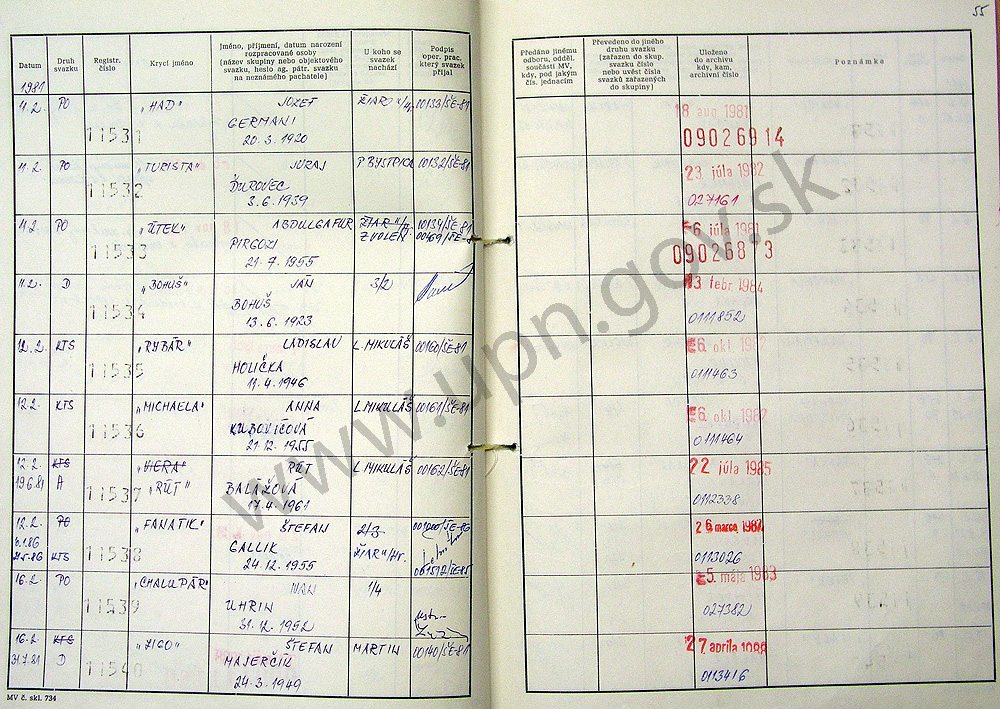 55
Datum
Druh svazku
Registr. číslo
Krycí jméno
Jméno, příjmení, datum narození
rozpracované osoby
(název skupiny nebo objektového
svazku, heslo ag. pátr. svazku
na neznámého pachatele)
U koho se
svazek
nachází
Podpis
oper. prac.
který svazek
přijal
Předáno jinému
odboru, odděl.
součásti MV,
kdy, pod jakým
čís. jednacím
Převedeno do jiného
druhu svazku
(zařazen do skup.
svazku číslo
nebo uvést čísla
svazků zařazených
do skupiny)
Uloženo
do archivu
kdy, kam,
archivní číslo
Poznámka
1981
11.2. PO „HAD" JOZEF 00133/ŠE-81 18 aug 1981
11531 GERMANI 09026914
20.3.1920
11.2. PO „TURISTA" JURAJ P. BYSTRICA 00132/ŠE-81 23. júla 1982
11532 ĎUROVEC 027161
3.6.1939
11.2. PO „ÚTEK" ABDULGAFUR 00134/ŠE-81 6. júla 1981
11533 PIRGOZI ZVOLEN
21.7.1955
11.2. D „BOHUŠ" JÁN 3/2 13 febr. 1984
11534 BOHUŠ 0111852
13.6.1923
12.2. KTS „RYBÁR" LADISLAV L. MIKULÁŠ 00160/ŠE-81 6. okt. 1982
11535 HOLIČKA 0111463
11.4.1946
12.2. KTS „MICHAELA" ANNA L. MIKULÁŠ 00161/ŠE-81 6. okt. 1982
11536 KUBOVIČOVÁ 0111464
21.12.1955
12.2. KTS „VIERA" RÚT L. MIKULÁŠ 00162/ŠE-81 22 júla 1985
19.6.81 A 11537 „RÚT" BALÁŽOVÁ 0112338
17.4.1961
12.2. PO „FANATIK" ŠTEFAN 2/3 26 marca
KTS 11538 GALLIK ŽIAR n/Hr. 0113026
24.12.1955
16.2. PO „CHALUPÁR" IVAN 1/4 5. mája 1983
11539 UHRIN 027382
31.12.1952
16.2. KTS „ZIGO" ŠTEFAN MARTIN 00140/ŠE-81 27 apríla 1988
31.7.81 D 11540 MAJERČÍK 0113416
24.3.1949
MV č. skl. 734
www.upn.gov.sk